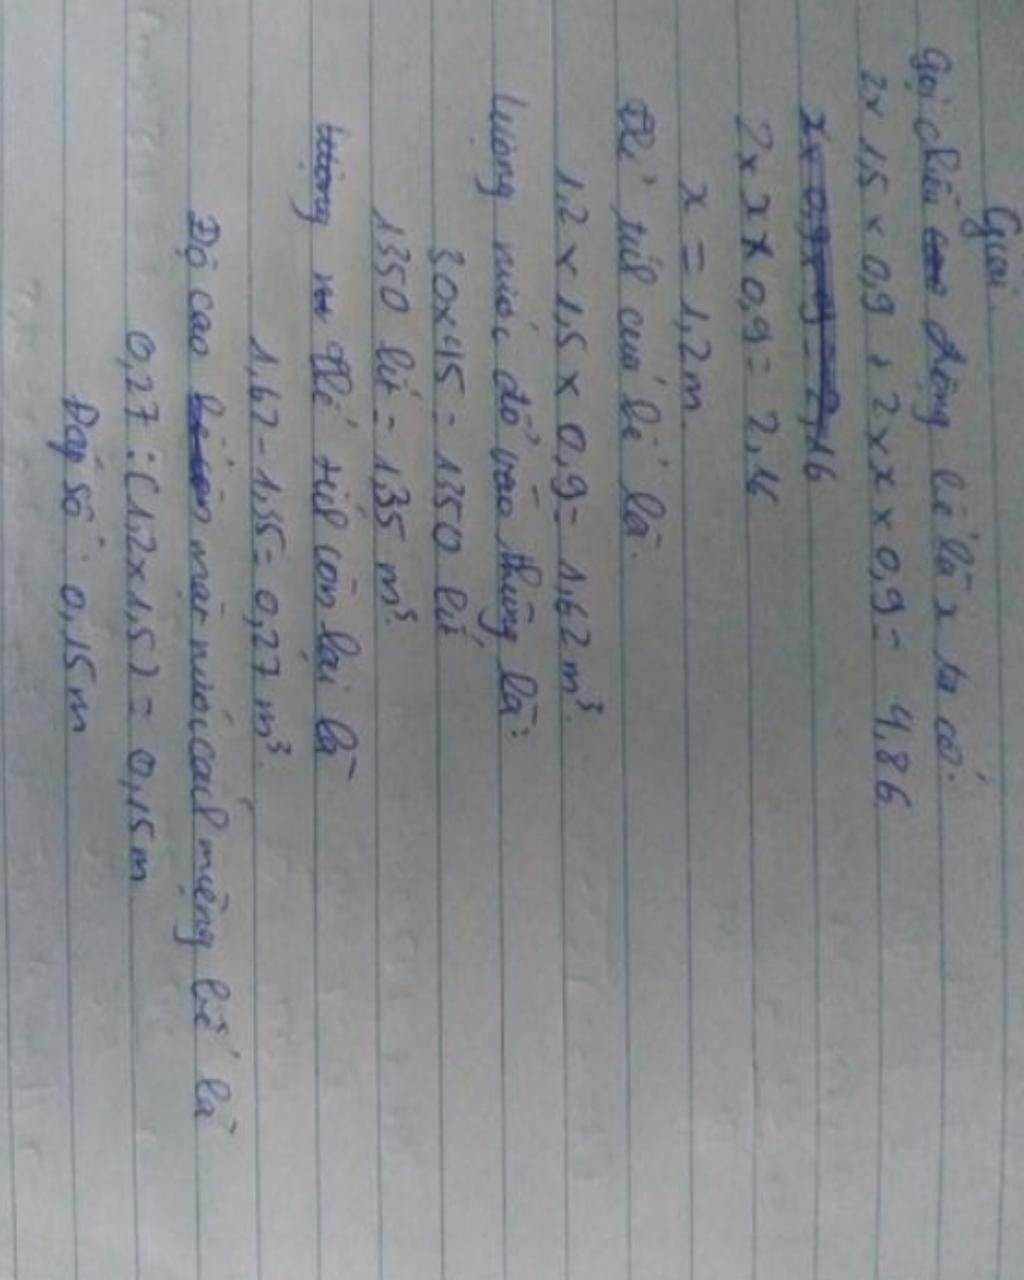 Giải
Gọi chiều rộng bể là x ta có:
2 x 1,5 x 0,9 + 2 x x x 0,9 = 4,86
2 x x x 0,9 = 2,16
x = 1,2 m
Thể tích của bể là.
1,2 x 1,5 x 0,9 = 1,62 m³.
Lượng nước đổ vào thùng là:
30 x 45 = 1350 lít
1350 lít = 1,35 m³.
Thể tích còn lại là
1,62 - 1,35 = 0,27 m³.
Độ cao mặt nước cách miệng bể là
0,27 : (1,2 x 1,5) = 0,15 m
Đáp số: 0,15 m